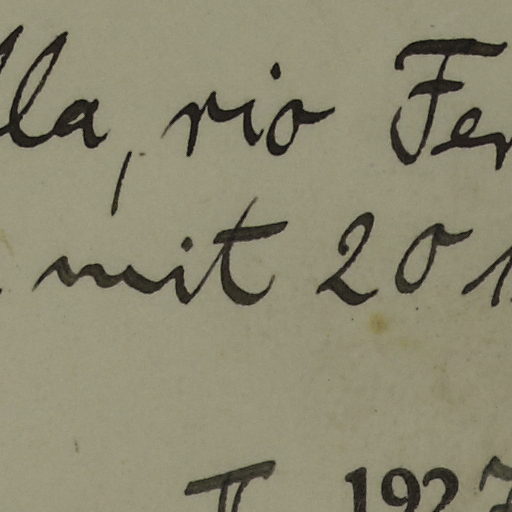 lla, rio Fer
mit 20
II 192